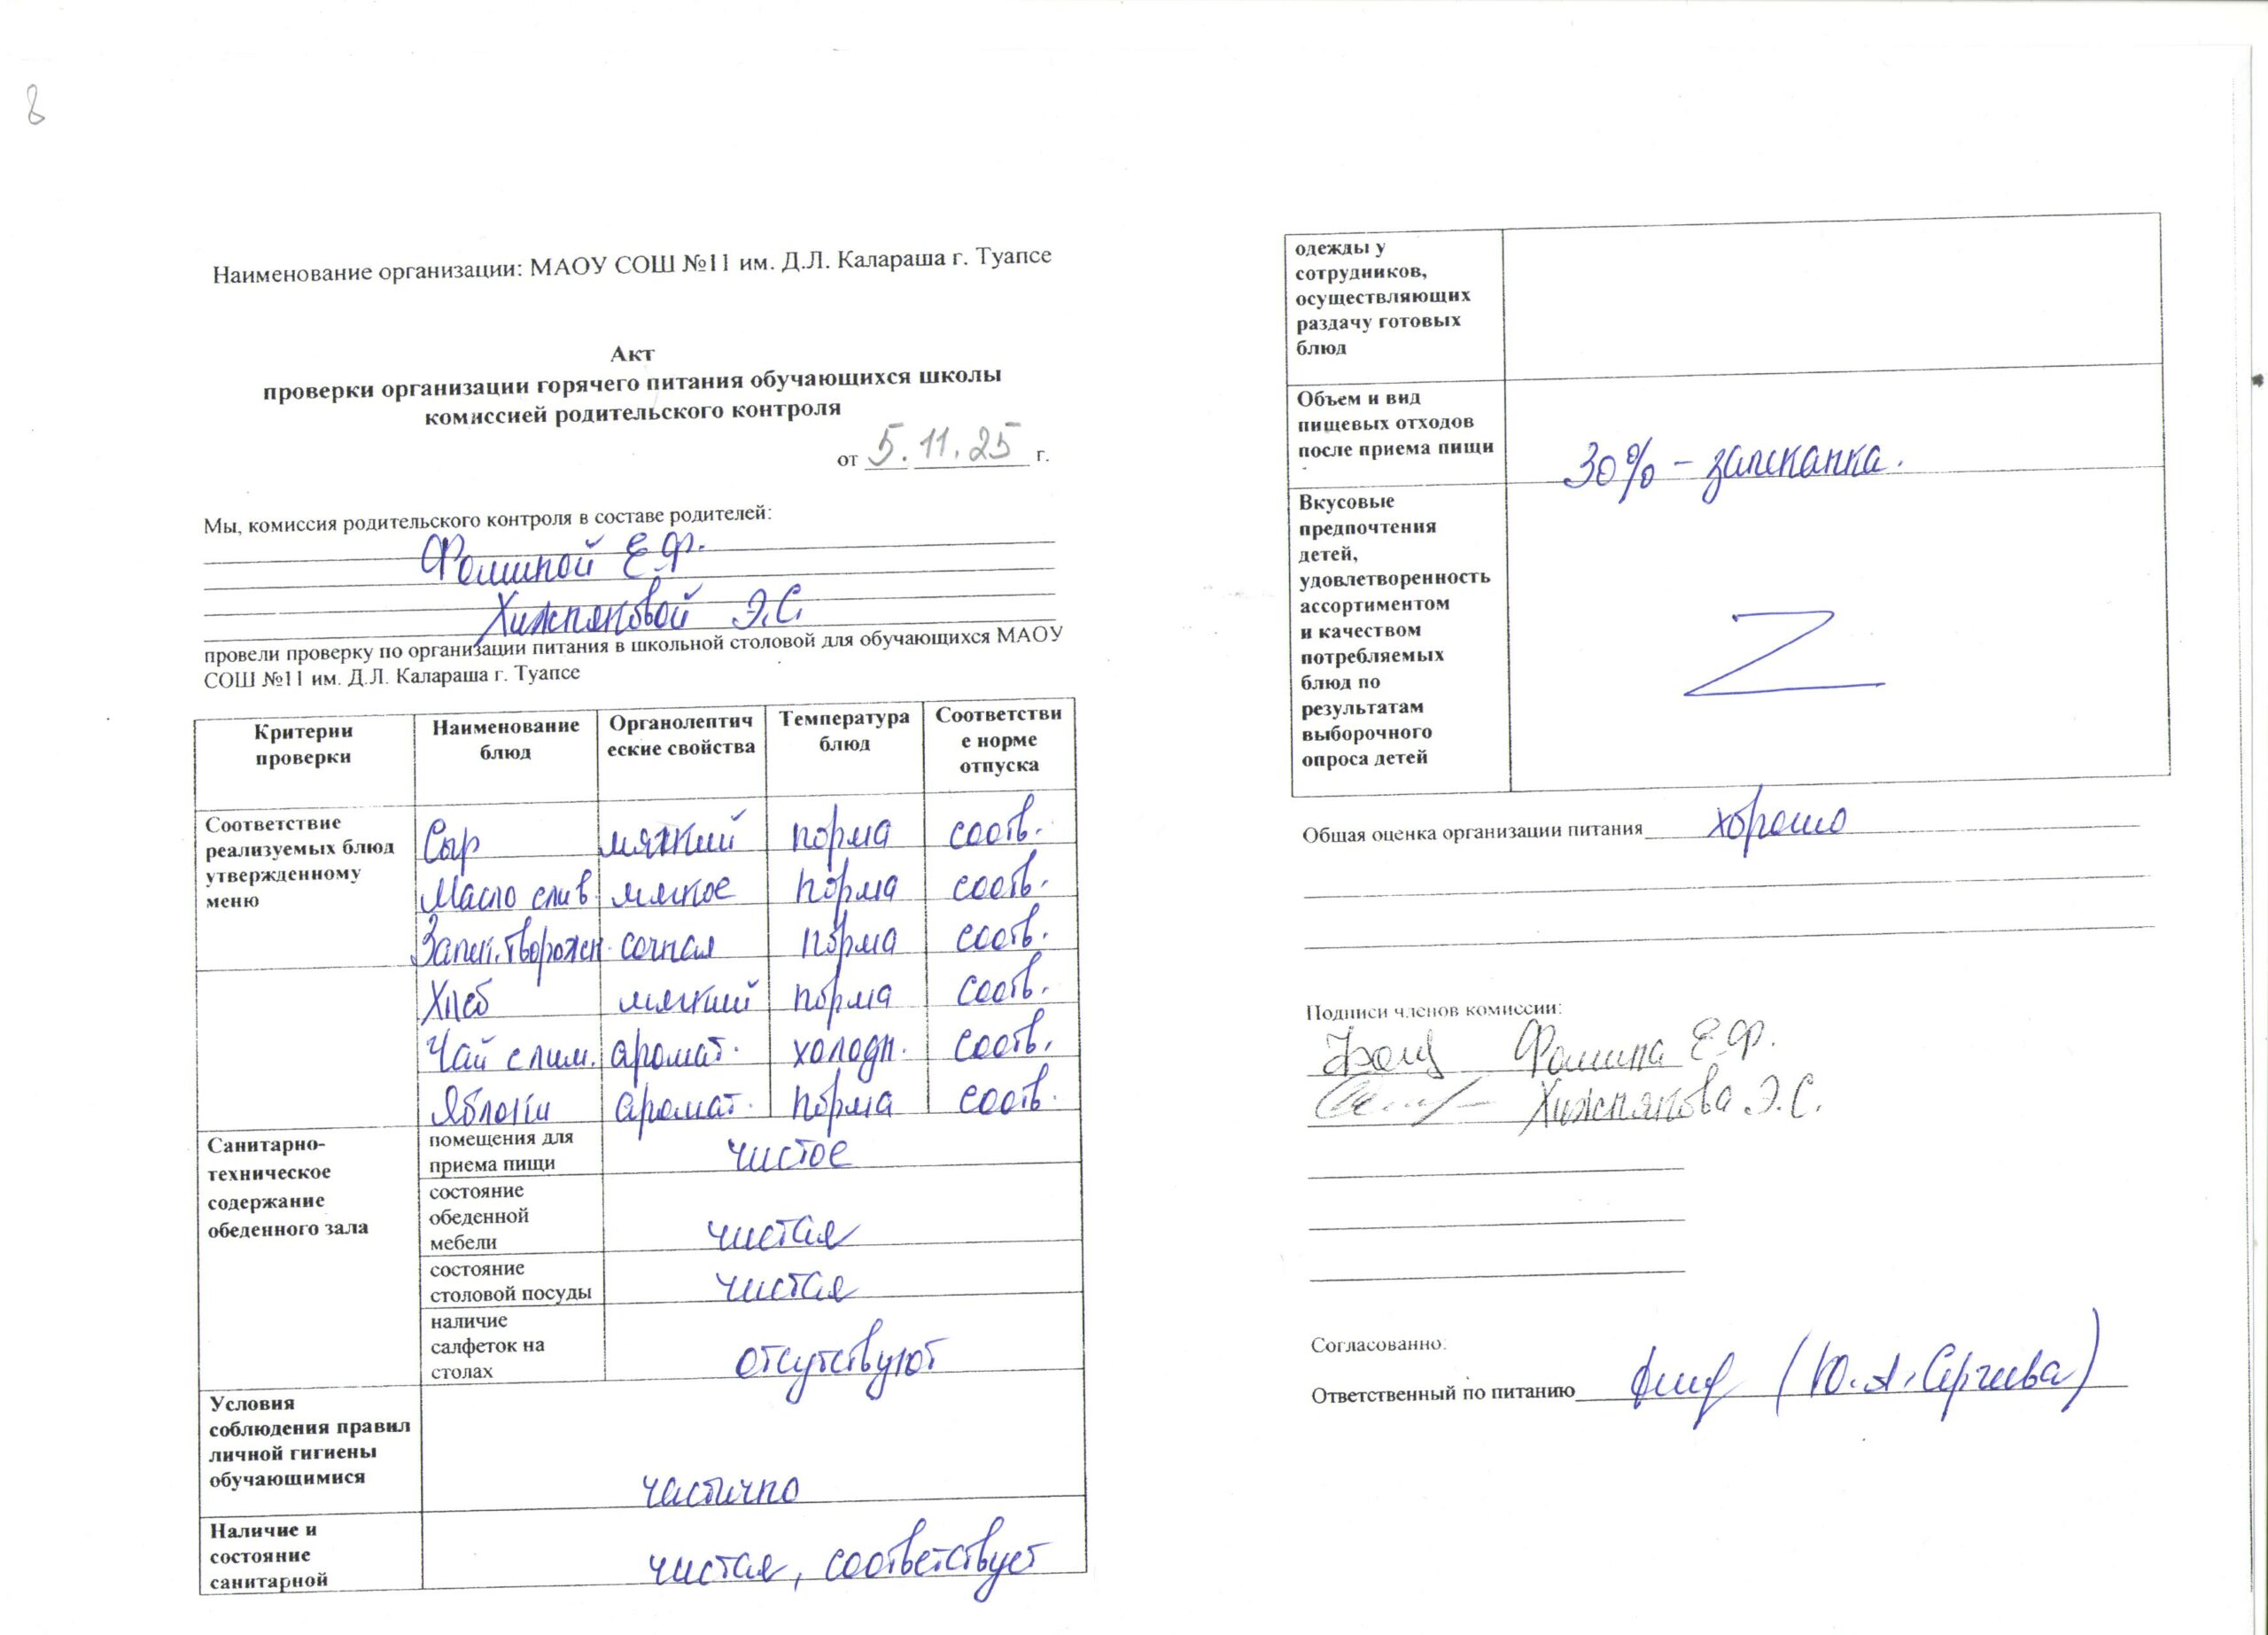 8
Наименование организации: МАОУ СОШ №11 им. Д.Л. Калараша г. Туапсе
Акт
проверки организации горячего питания обучающихся школы
комиссией родительского контроля
от 5.11.25 г.
Мы, комиссия родительского контроля в составе родителей:
Фоминой Е.Ф.
Хижняковой Э.С.
провели проверку по организации питания в школьной столовой для обучающихся МАОУ
СОШ №11 им. Д.Л. Калараша г. Туапсе
Критерии проверки Наименование блюд Органолептические свойства Температура блюд Соответствие норме отпуска
Соответствие
реализуемых блюд
утвержденному
меню
Сыр мягкий норма соотв.
Масло слив. мягкое норма соотв.
Запек. творожн. сочная норма соотв.
Хлеб мягкий норма соотв.
Чай с лим. аромат. холодн. соотв.
Яблоки аромат. норма соотв.
Санитарно-
техническое
содержание
обеденного зала
помещения для
приема пищи чистое
состояние
обеденной
мебели чистая
состояние
столовой посуды чистая
наличие
салфеток на
столах отсутствуют
Условия
соблюдения правил
личной гигиены
обучающимися частично
Наличие и
состояние
санитарной чистая, соответствует
одежды у
сотрудников,
осуществляющих
раздачу готовых
блюд
Объем и вид
пищевых отходов
после приема пищи 30% - запеканка.
Вкусовые
предпочтения
детей,
удовлетворенность
ассортиментом
и качеством
потребляемых
блюд по
результатам
выборочного
опроса детей
Z
Общая оценка организации питания хорошо
Подписи членов комиссии:
Фомина Е.Ф.
Хижнякова Э.С.
Согласованно:
Ответственный по питанию (Ю.А. Сергеева)